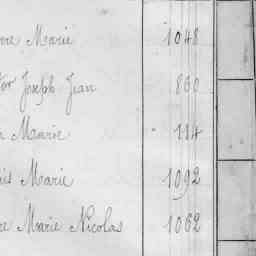 rre Marie 1048
tor Joseph Jean 860
Marie 114
is Marie 1092
re Marie Nicolas 1062